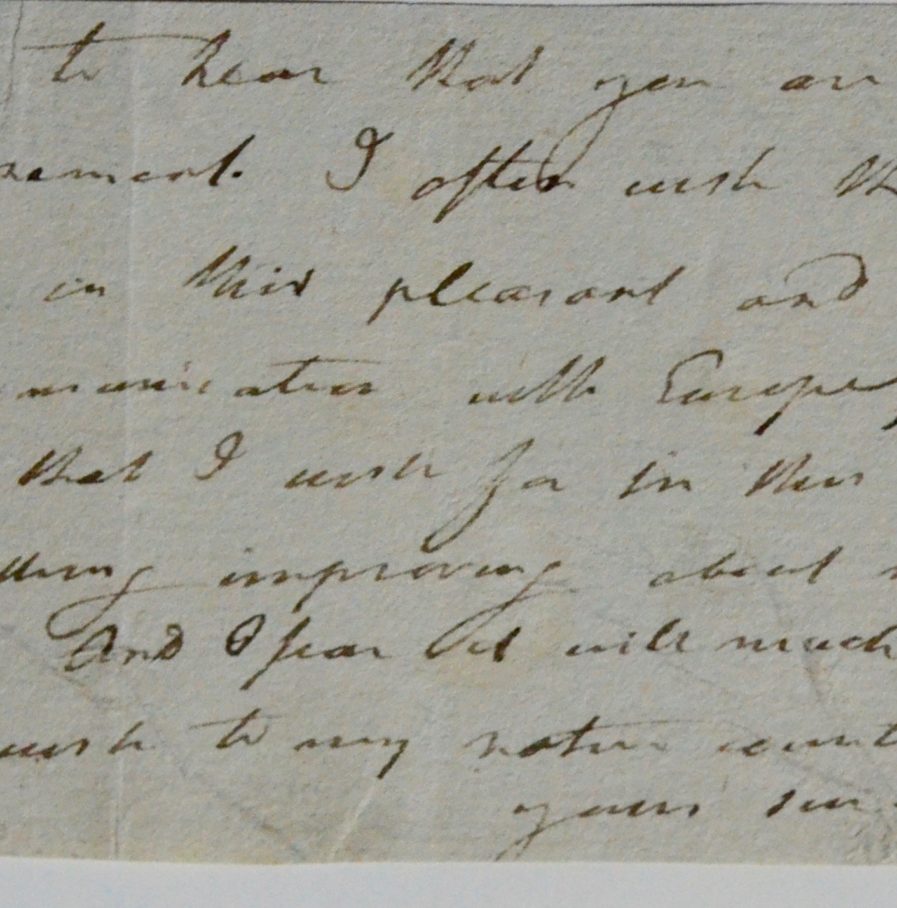 to hear that you are
nement. I often wish th
in this pleasant and
munication with Europe
that I wish for in this
thing improving about
And I fear it will much
wish to my native count
yours sin